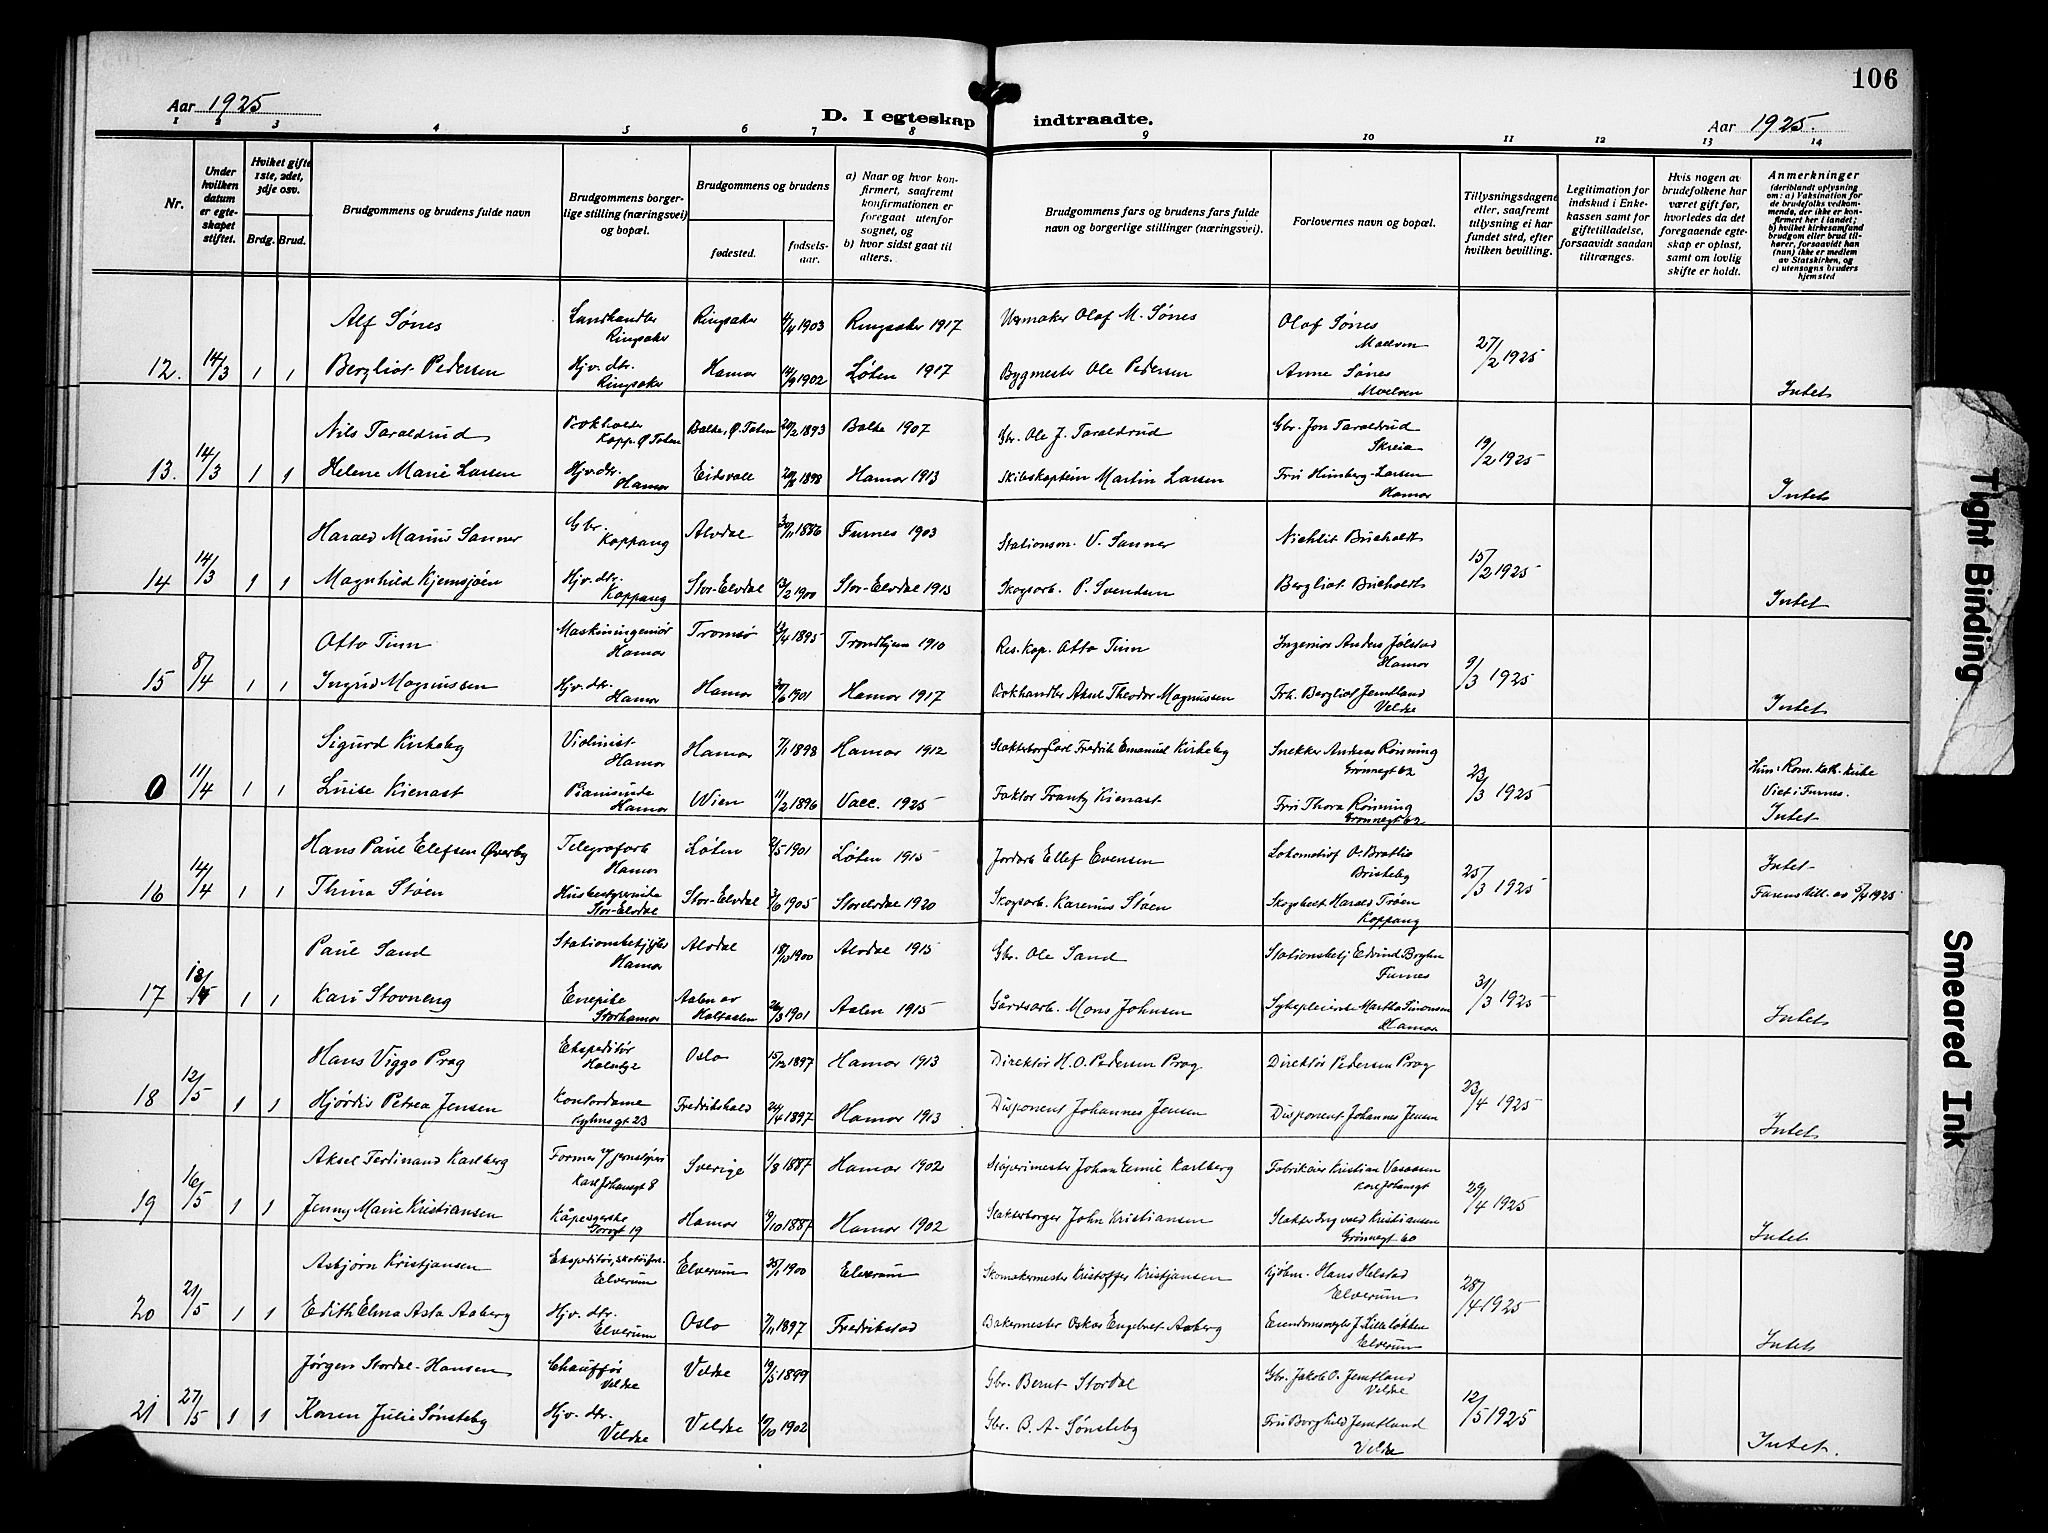 106
Aar 1925
D. I egteskap indtraadte.
Aar 1925.
1 2 3 4 5 6 7 8 9 10 11 12 13 14
Nr.
Under hvilken datum er egteskapet stiftet.
Hvilket gifte 1ste, 2det, 3dje osv.
Brdg. Brud.
Brudgommens og brudens fulde navn
Brudgommens borgerlige stilling (næringsvei) og bopæl.
Brudgommens og brudens
fødested.
fødselsaar.
a) Naar og hvor konfirmert, saafremt konfirmationen er foregaat utenfor sognet, og
b) hvor sidst gaat til alters.
Brudgommens fars og brudens fars fulde navn og borgerlige stillinger (næringsvei).
Forlovernes navn og bopæl.
Tillysningsdagene eller, saafremt tillysning ei har fundet sted, efter hvilken bevilling.
Legitimation for indskud i Enkekassen samt for giftetilladelse, forsaavidt saadan tiltrænges.
Hvis nogen av brudefolkene har været gift før, hvorledes da det foregaaende egteskap er opløst, samt om lovlig skifte er holdt.
Anmerkninger
(deriblandt oplysning om: a) Vaksination for de brudefolks vedkommende, der ikke er konfirmert her i landet; b) hvilket kirkesamfund brudgom eller brud tilhører, forsaavidt han (hun) ikke er medlem av Statskirken, og c) utensogns bruders hjemsted
Alf Sønes Landhandler Ringsaker Ringsaker 4/4 1903 Ringsaker 1917 Urmaker Olaf M. Sønes Olaf Sønes Moelven
12. 14/3 1 1 Bergliot Pedersen Hjv. dtr. Ringsaker Hamar 14/9 1902 Løten 1917 Bygmester Ole Pedersen Anne Sønes Moelven 27/2 1925 Intet
Nils Taraldrud Bokholder Kapp. Ø Toten Balke, Ø. Toten 20/2 1893 Balke 1907 Gbr. Ole J. Taraldrud Gbr. Jon Taraldrud Skreia
13. 14/3 1 1 Helene Marie Larsen Hjv. dtr. Hamar Eidsvoll 1898 Hamar 1913 Skibskaptein Martin Larsen Fru Himberg-Larsen Hamar 19/2 1925 Intet
Harald Marius Sanner Gbr. Koppang Alvdal 30/11 1886 Furnes 1903 Stationsm. V. Sanner Buchholdt
14 14/3 1 1 Magnhild Kjemsjøen Hjv. dtr. Koppang Stor-Elvdal 1900 Stor-Elvdal 1915 Skogsarb. P. Svendsen Bergliot Buchholdt 15/2 1925 Intet
Otto Tinn Maskiningeniør Hamar Tromsø 1895 Trondhjem 1910 Res. kap. Otto Tinn Ingeniør Anders Jølstad Hamar
15 8/4 1 1 Ingrid Magnussen Hjv. dtr. Hamar Hamar 30/6 1901 Hamar 1917 Bokhandler Aksel Theodor Magnussen Frk. Bergliot Jemtland Veldre 9/3 1925 Intet
Sigurd Kirkeby Violinist Hamar Hamar 7/1 1898 Hamar 1912 Slakterborg Carl Fredrik Emanuel Kirkeby Snekker Andreas Rønning Grønnegt 62
0 11/4 1 1 Luise Kienast Pianistinde Hamar Wien 11/2 1896 Vacc. 1925 Faktor Frantz Kienast Fru Thora Rønning Grønnegt 62 23/3 1925 Hun: Rom. kath. kirke Viet i Furnes. Intet
Hans Paul Elefsen Øverby Telegrafarb Hamar Løten 2/5 1901 Løten 1915 Jordarb Ellef Evensen Lokomotivf O. Bratlie Briskeby Intet
16 14/4 1 1 Thina Støen Husbestyrerinde Stor-Elvdal Stor-Elvdal 3/6 1905 Storelvdal 1920 Skogsarb. Karenus Støen Skogsbet Harald Trøen Koppang 25/3 1925 Farens till. av 5/4 1925
Paul Sand Stationsbetjent Hamar Alvdal 18/10 1900 Alvdal 1915 Gbr. Ole Sand Stationsbetj Edvind Furnes
17 18/4 1 1 Kari Stovneng Enepike Storhamar Aalen av Holtaalen 26/3 1901 Aalen 1915 Gårdsarb. Mons Johnsen Sykepleierske Martha Simonsen Hamar 31/3 1925 Intet
Hans Viggo Prag Ekspeditør Oslo 15/12 1897 Hamar 1913 Direktør H. O. Pedersen Prag Direktør Pedersen Prag
18 12/5 1 1 Hjørdis Petrea Jensen Kontordame 23 Fredrikshald 24/4 1897 Hamar 1913 Disponent Johannes Jensen Disponent Johannes Jensen 23/4 1925 Intet
Aksel Ferdinand Karlberg Former v/ jernstøperi Karl Johansgt 8 Sverige 1/8 1887 Hamar 1902 Støperimester Johan Emil Karlberg Fabrikeier Kristian Vasaasen Karl Johansgt
19 16/5 1 1 Jenny Marie Kristiansen Kåpesyerske Torvgt 19 Hamar 9/10 1887 Hamar 1902 Slakterborger John Kristiansen Slakter Ingvald Kristiansen Grønnegt 60 29/4 1925 Intet
Asbjørn Kristjansen Ekspeditør, skotøiforr. Elverum Elverum 25/1 1900 Elverum Skomakermester Kristoffer Kristjansen Kjøbm. Hans Helstad Elverum
20 21/5 1 1 Edith Elma Asta Aaberg Hjv. dtr. Elverum Oslo 7/11 1897 Fredrikstad Bakermester Oskar Engelbret Aaberg Eiendomsmegler J. Lilleløkken Elverum 28/4 1925 Intet
Jørgen Stordal-Hansen Chauffør Veldre Veldre 19/5 1899 Gbr. Bernt Stordal Gbr. Jakob O. Jemtland Veldre
21 27/5 1 1 Karen Julie Sønsteby Hjv. dtr. Veldre Veldre 10/10 1902 Gbr. B. A. Sønsteby Fru Borghild Jemtland Veldre 12/5 1925 Intet.
Tight Binding
Smeared Ink